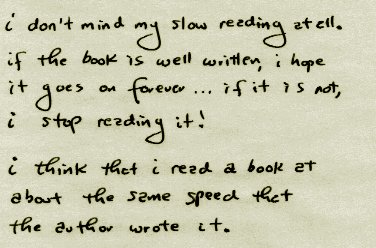 i don't mind my slow reading atell.
if the book is well written, i hope
it goes on forever... if it is not,
i stop reading it!
i think that i read a book at
about the same speed that
the author wrote it.